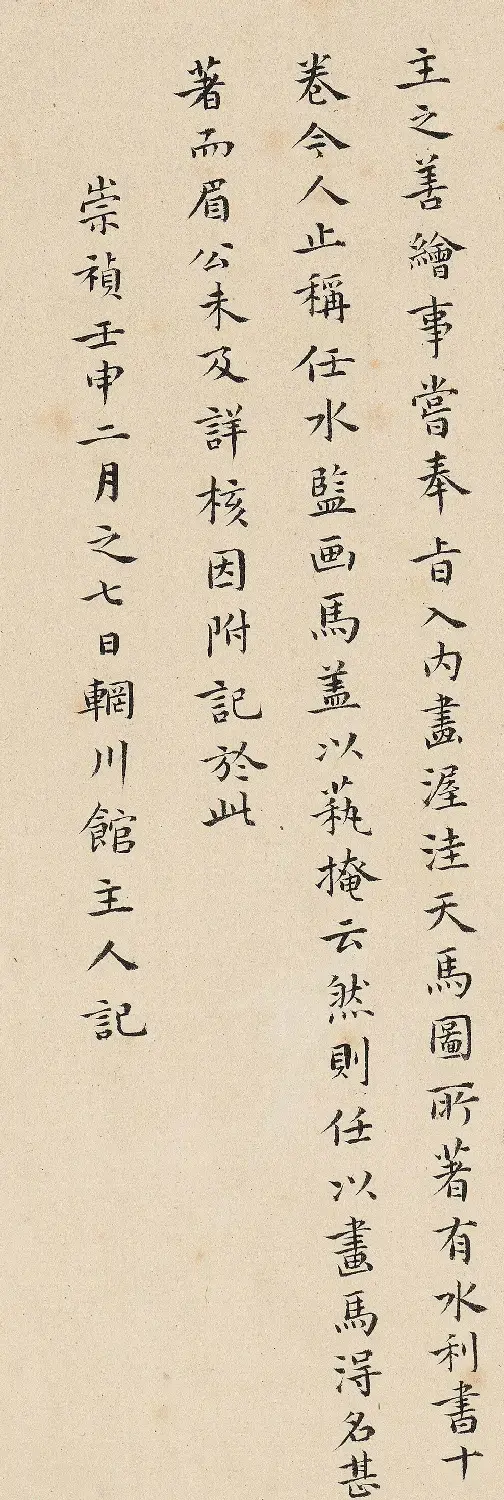 主之善繪事嘗奉旨入内畫渥洼天馬圖所著有水利書十
卷今人止稱任水監画馬盖以蓺掩云然則任以畫馬淂名甚
著而眉公未及詳核因附記於此
崇禎壬申二月之七日輞川館主人記